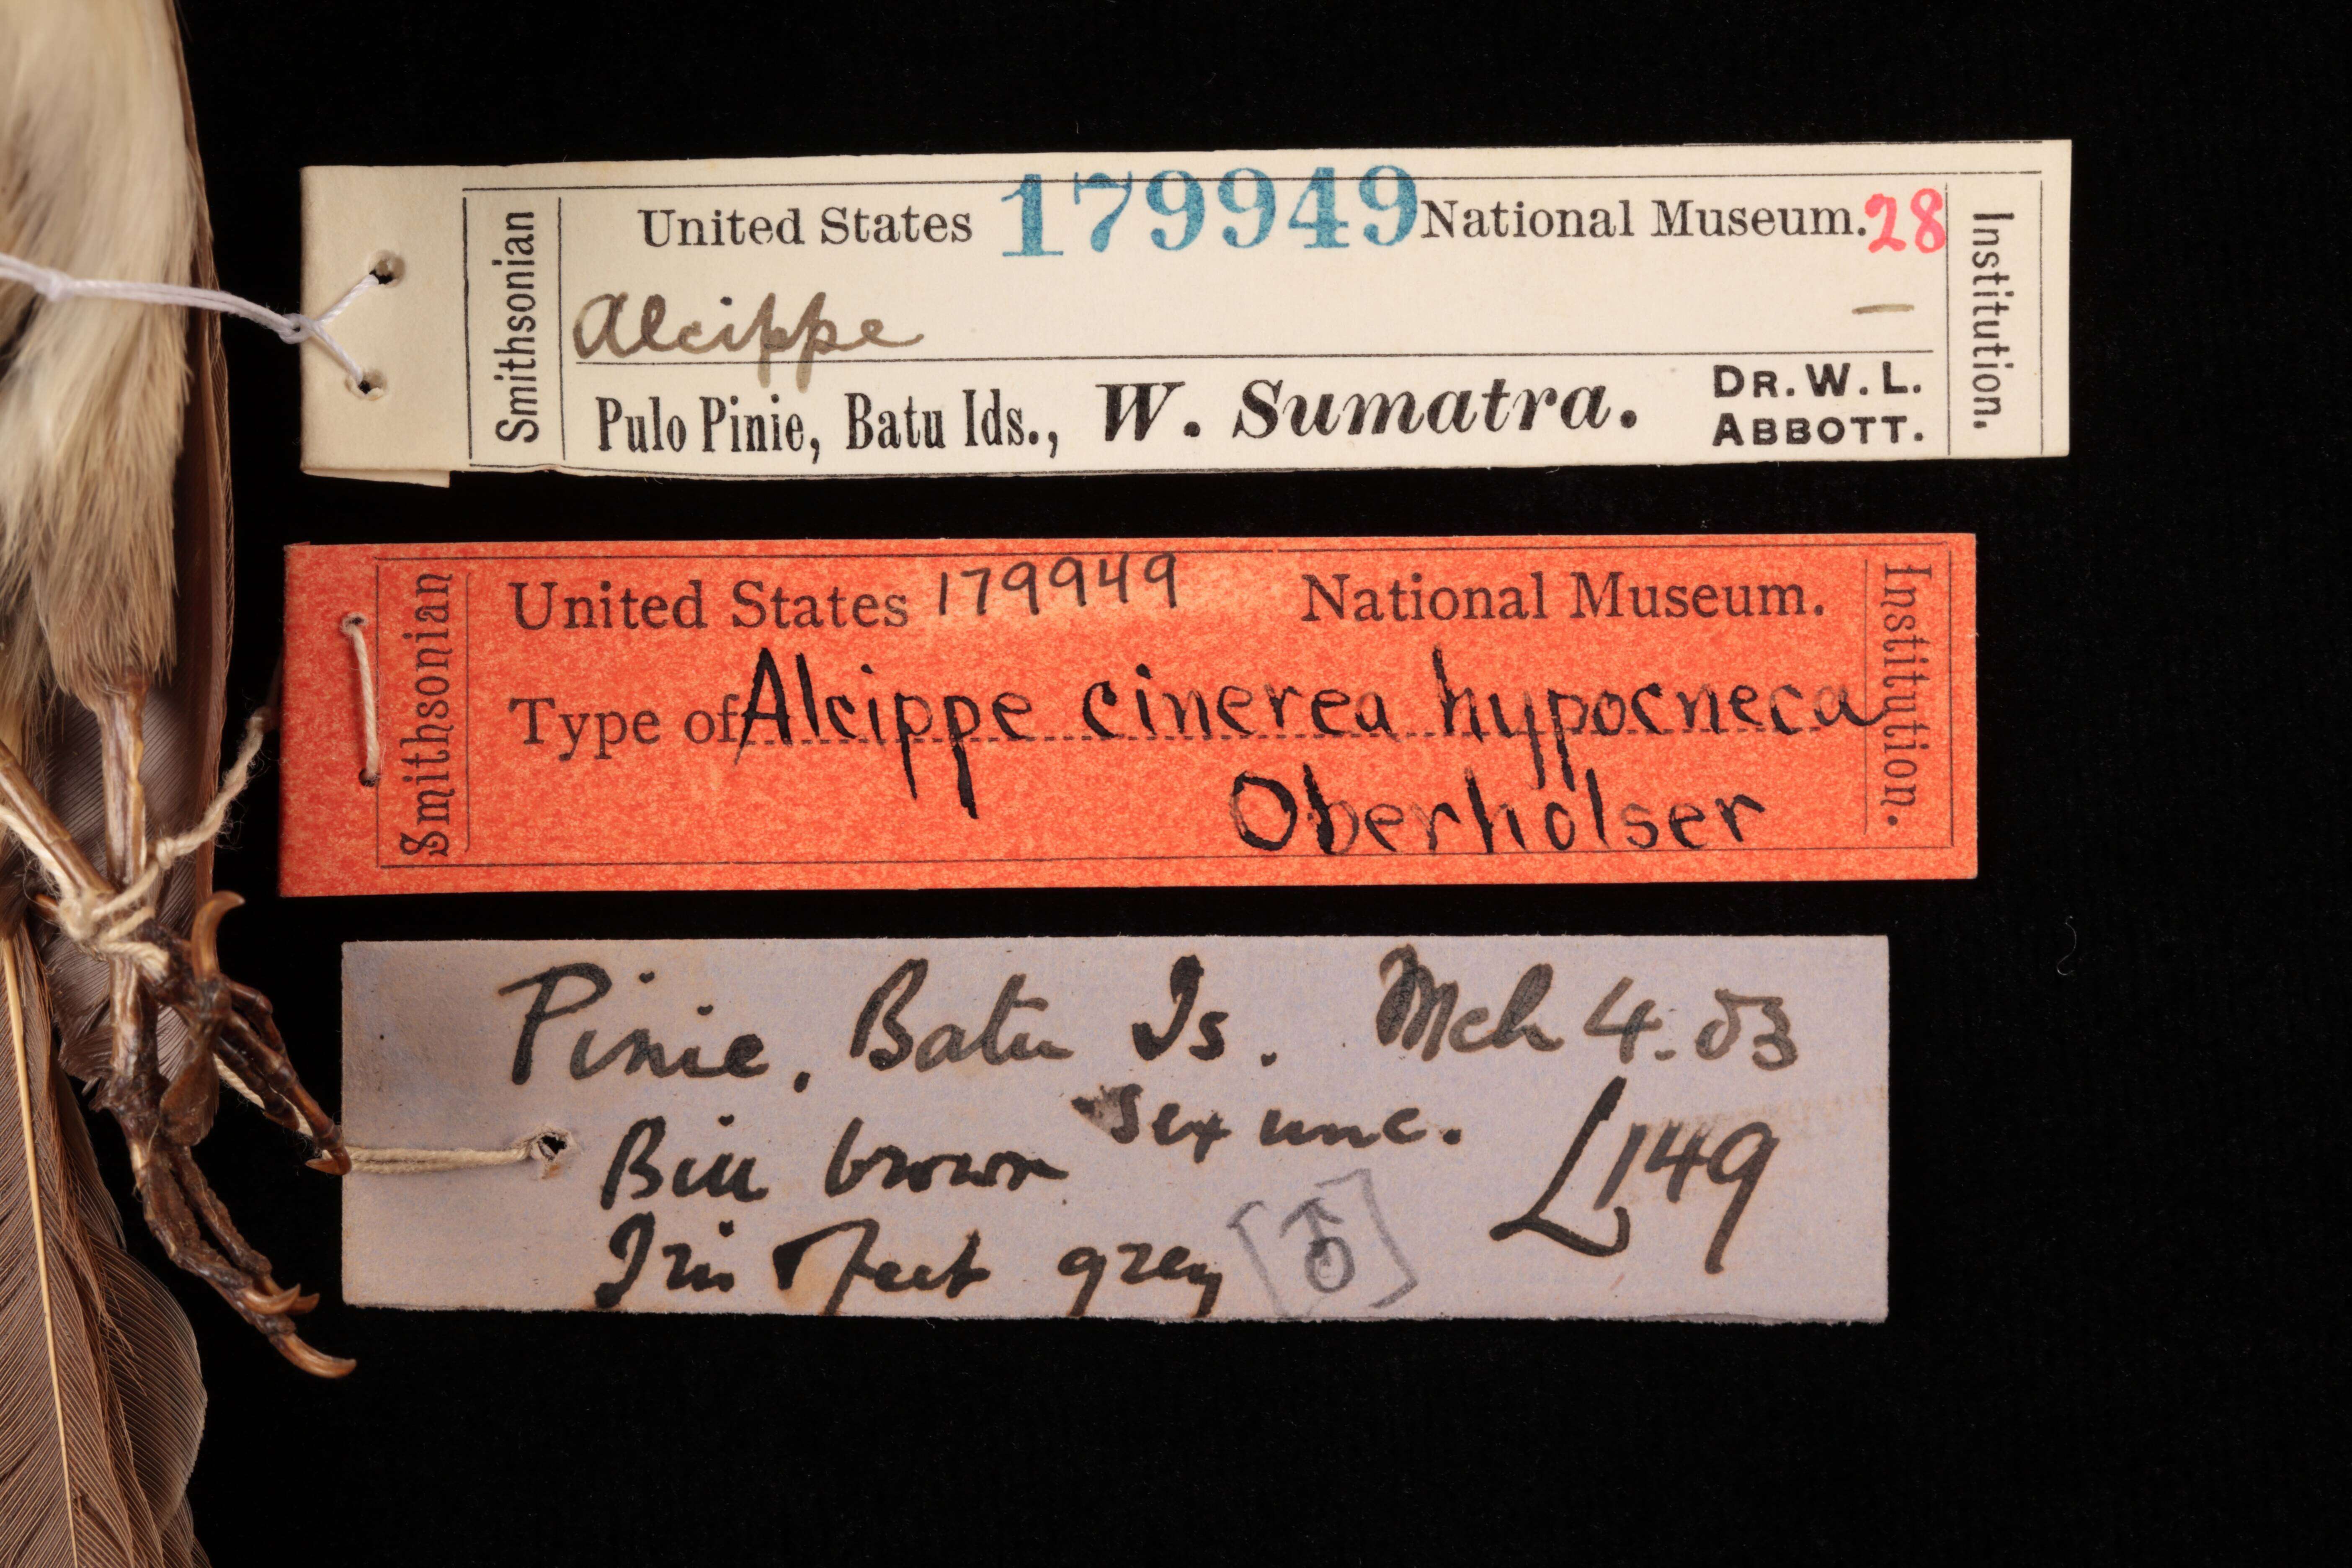 Smithsonian
United States 179949 National Museum. 28
Alcippe —
Pulo Pinie, Batu Ids., W. Sumatra. DR. W. L. ABBOTT.
Institution.
Smithsonian
United States 179949 National Museum.
Type of Alcippe cinerea hypocneca
Oberholser
Institution.
Pinie, Batu Is. Mch 4. 03
Sex unc.
Bill brown
L149
Iris feet grey [♂]